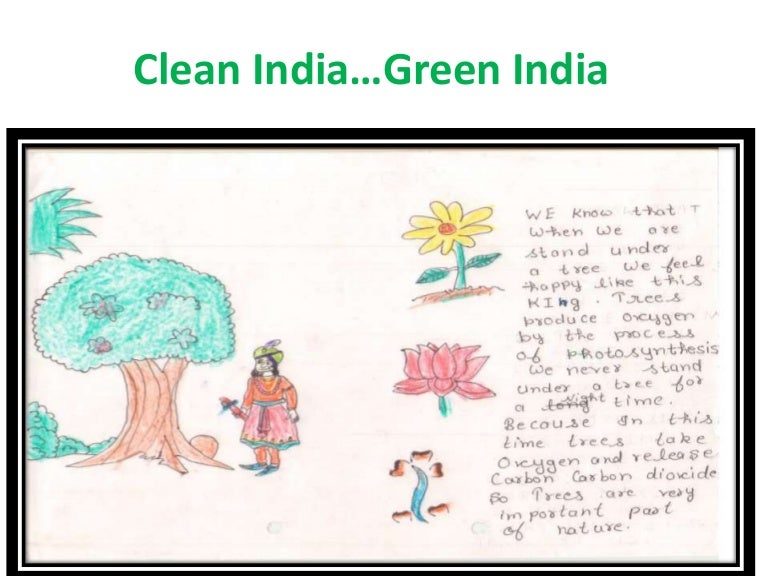 Clean India...Green India
WE know that
when we are
stand under
a tree we feel
happy like this
KINg. Trees
produce oxygen
by the process
of photosynthesis
We never stand
under a tree for
a night time.
Because In this
time trees take
Oxygen and release
Carbon Carbon dioxide
So Trees are very
important part
of nature.